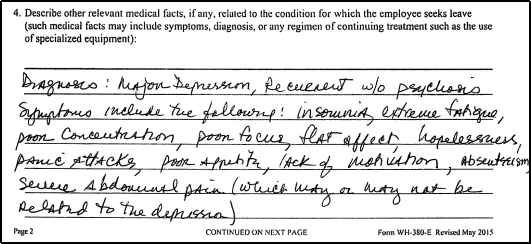 4. Describe other relevant medical facts, if any, related to the condition for which the employee seeks leave
(such medical facts may include symptoms, diagnosis, or any regimen of continuing treatment such as the use
of specialized equipment):
Diagnosis: Major Depression, Recurrent w/o psychosis
Symptoms include the following: insomnia, extreme fatigue,
poor concentration, poor focus, flat affect, hopelessness,
panic attacks, poor appetite, lack of motivation, absenteeism
Severe abdominal pain (which may or may not be
related to the depression)
Page 2 CONTINUED ON NEXT PAGE Form WH-380-E Revised May 2015